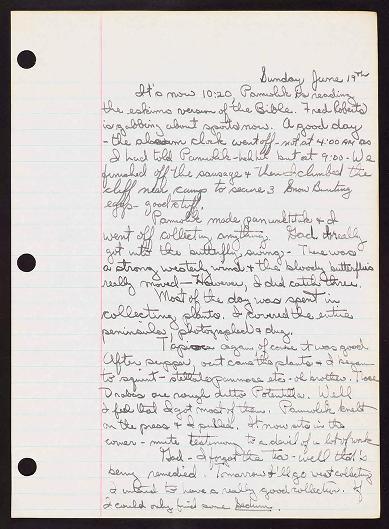 Sunday June 19th
It's now 10:20, Pamiolik is reading
the eskimo version of the Bible. Fred Roberts
is gabbing about sports now. A good day
- the alarm clock went off - not at 4:00 AM as
I had told Pamiolik - but at 9:00 - We
finished off the sausage & then I climbed the
cliff near camp to secure 3 Snow Bunting
eggs - good stuff.
Pamiolik made & I
went off collecting anything. God I really
got into the butterfly swing - There was
a strong westerly wind & the bloody butterflies
really moved - However, I did catch three.
Most of the day was spent in
collecting plants. I covered the entire
peninsula, photographed & dug.
again of course it was good
After supper, out came the plants & I began
to squint - etc - oh brother. Those
Drabas are rough ditto Potentilla. Well
I feel that I got most of them. Pamiolik knelt
on the press & I pulled. It now sits in the
corner - mute testimony to a devil of a lot of work
God - I forgot the tea - well that's
being remedied. Tomorrow I'll go west collecting
I intend to have a really good collection. If
I could only find some